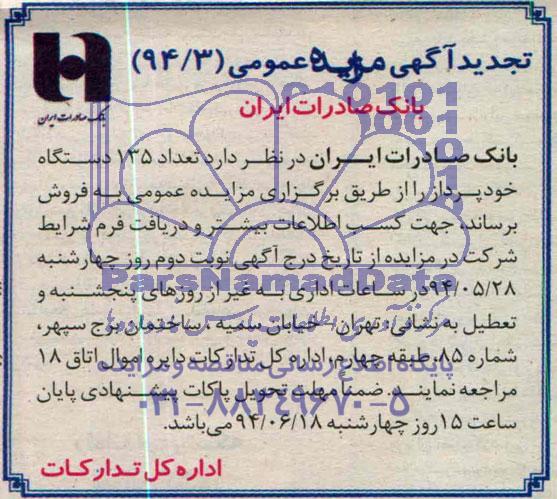 تجدید آگهی مزایده عمومی (۹۴/۳)
بانک صادرات ایران
بانک صادرات ایران
بانک صادرات ایران در نظر دارد تعداد ۱۳۵ دستگاه
خودپرداز را از طریق برگزاری مزایده عمومی به فروش
برساند، جهت کسب اطلاعات بیشتر و دریافت فرم شرایط
شرکت در مزایده از تاریخ درج آگهی نوبت دوم روز چهارشنبه
۹۴/۰۵/۲۸ در ساعات اداری به غیر از روزهای پنجشنبه و
تعطیل به نشانی: تهران - خیابان سمیه، ساختمان برج سپهر،
شماره ۸۵، طبقه چهارم، اداره کل تدارکات دایره اموال اتاق ۱۸
مراجعه نمایند. ضمناً مهلت تحویل پاکات پیشنهادی پایان
ساعت ۱۵ روز چهارشنبه ۹۴/۰۶/۱۸ می‌باشد.
اداره کل تدارکات
ParsNamadData
پایگاه اطلاع رسانی مناقصه و مزایده
۰۲۱-۸۸۳۴۹۶۷۰-۵